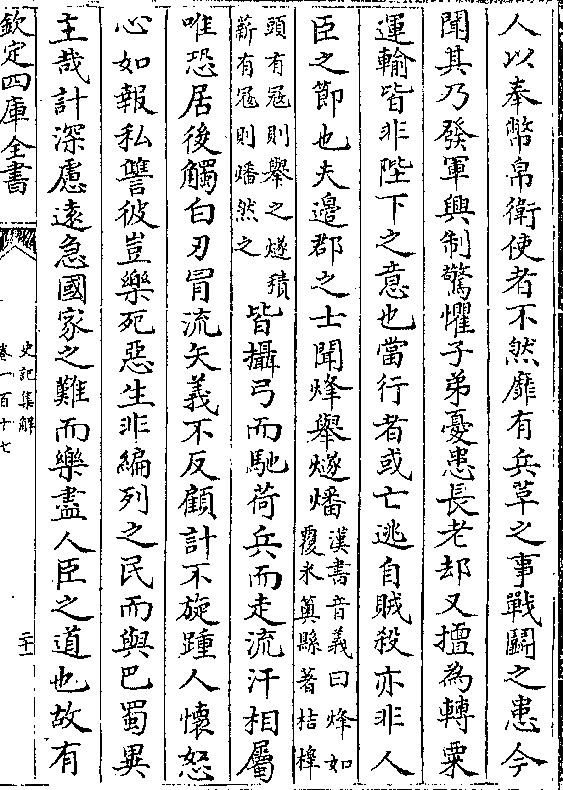 人以奉幣帛衛使者不然靡有兵革之事戰鬭之患今
聞其乃發軍興制驚懼子弟憂患長老郤又擅為轉粟
運輸皆非陛下之意也當行者或亡逃自賊殺亦非人
臣之節也夫邊郡之士聞烽舉燧燔
漢書音義曰烽如
覆米䉛縣著桔槔
頭有寇則舉之燧積
薪有寇則燔然之
皆攝弓而馳荷兵而走流汗相屬
唯恐居後觸白刃冒流矢義不反顧計不旋踵人懷怒
心如報私讐彼豈樂死惡生非編列之民而與巴蜀異
主哉計深慮遠急國家之難而樂盡人臣之道也故有
欽定四庫全書
史記集解
卷一百十七
二十一